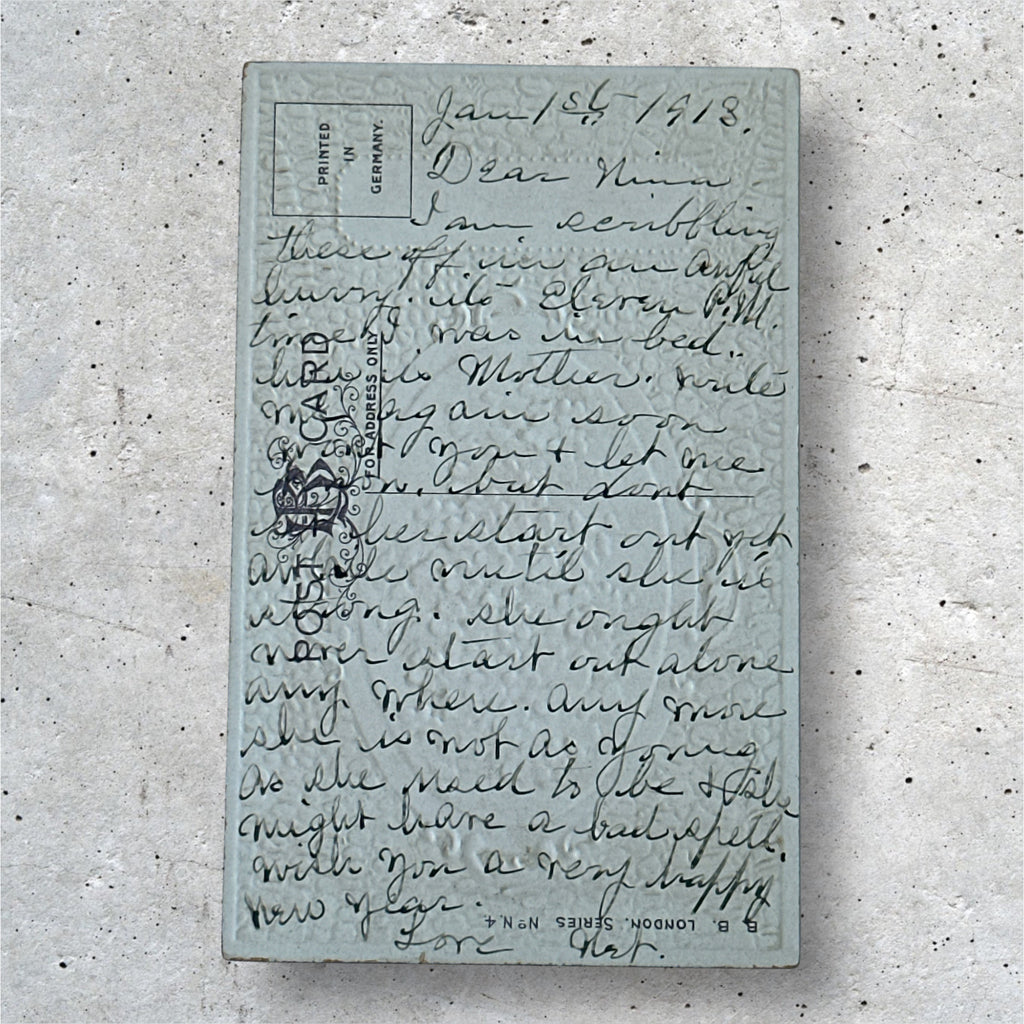 Jan 1st 1913.
Dear Nina
I am scribbling
these off in an awful
hurry. its Eleven P.M.
time I was in bed.
how is Mother. write
me again soon
wont you & let me
know. but dont
let her start out yet
awhile until she is
strong. she ought
never start out alone
any where. any more
she is not as young
as she used to be & she
might have a bad spell.
wish you a very happy
New Year.
Love Net.
PRINTED
IN
GERMANY.
POST CARD
FOR ADDRESS ONLY
B
B. B. LONDON. SERIES No N. 4